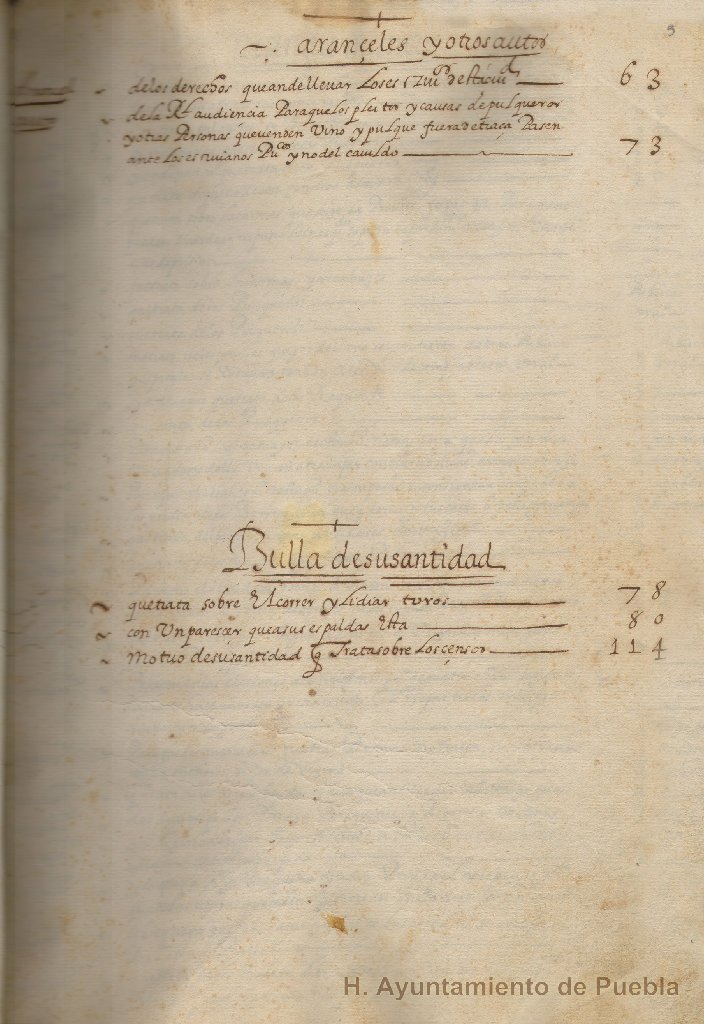 5
arançeles y otros autos
de los derechos que an de llevar los escriu.os desta ciud 63
de la Rl audiencia Para que los pleitos y causas de pulqueros
y otras Personas que venden Vino y pulque fuera de traça Pasen
ante los escriuianos Pu.cos y no del cauildo 73
Bulla de su santidad
que trata sobre El correr y lidiar toros 78
con Un parescer que a sus espaldas Esta 80
Motuo de su santidad q Trata sobre Los çensos 114
H. Ayuntamiento de Puebla